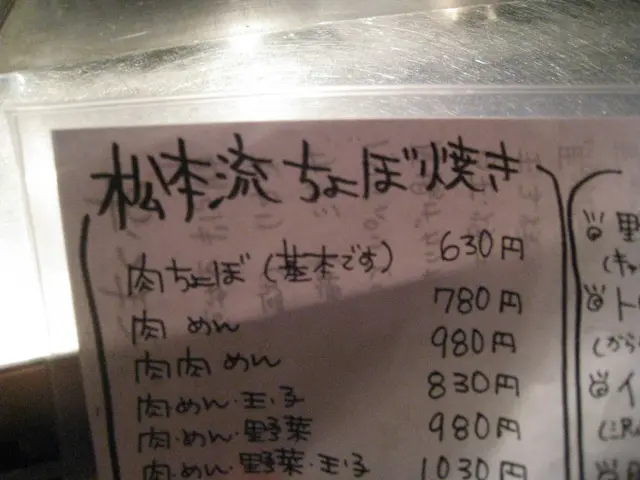 松本流 ちょぼ焼き
肉ちょぼ (基本です) 630円
肉 めん 780円
肉肉 めん 980円
肉・めん・玉子 830円
肉・めん・野菜 980円
肉・めん・野菜・玉子 1030円
野
(キャ
ト
(から
イ